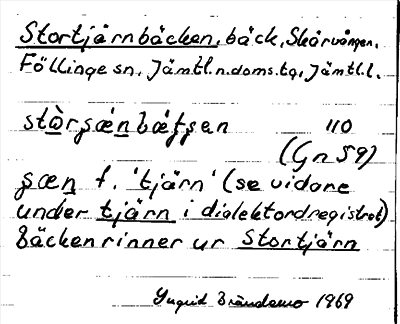 Stortjärnbäcken, bäck, Skärvången,
Föllinge sn, Jämtl.n.doms.tg, Jämtl.l.
110
(Gn 59)
f. 'tjärn' (se vidare
under tjärn i dialektordregistret)
Bäcken rinner ur Stortjärn
Yngrid Brändemo 1969